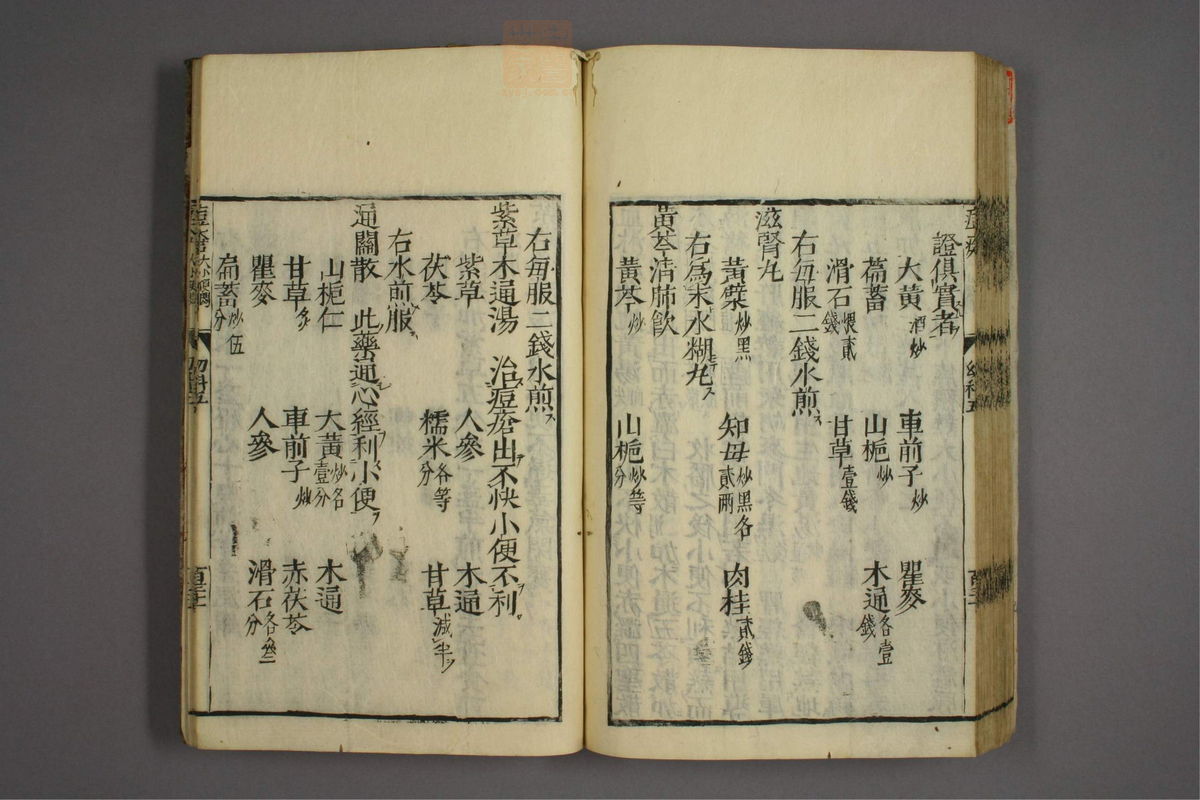 證俱實者
大黃酒炒 車前子炒 瞿麥
萹蓄 山梔炒 木通各壹錢
滑石煨貳錢 甘草壹錢
右每服二錢水煎
滋腎丸
黃檗炒黑 知母炒黑各貳兩 肉桂貳錢
右為末水糊丸
黃芩清肺飲
黃芩炒 山梔炒等分
右每服二錢水煎
紫草木通湯 治痘瘡出不快小便不利
紫草 人參 木通
茯苓 糯米各等分 甘草減半
右水煎服
通關散 此藥通心經利小便
山梔仁 大黃炒各壹分 木通
甘草炙 車前子炒 赤茯苓
瞿麥 人參 滑石各叁分
扁蓄炒伍分